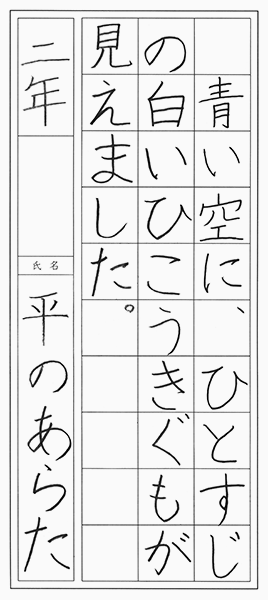 青い空に、ひとすじ
の白いひこうきぐもが
見えました。
二年
氏名
平のあらた